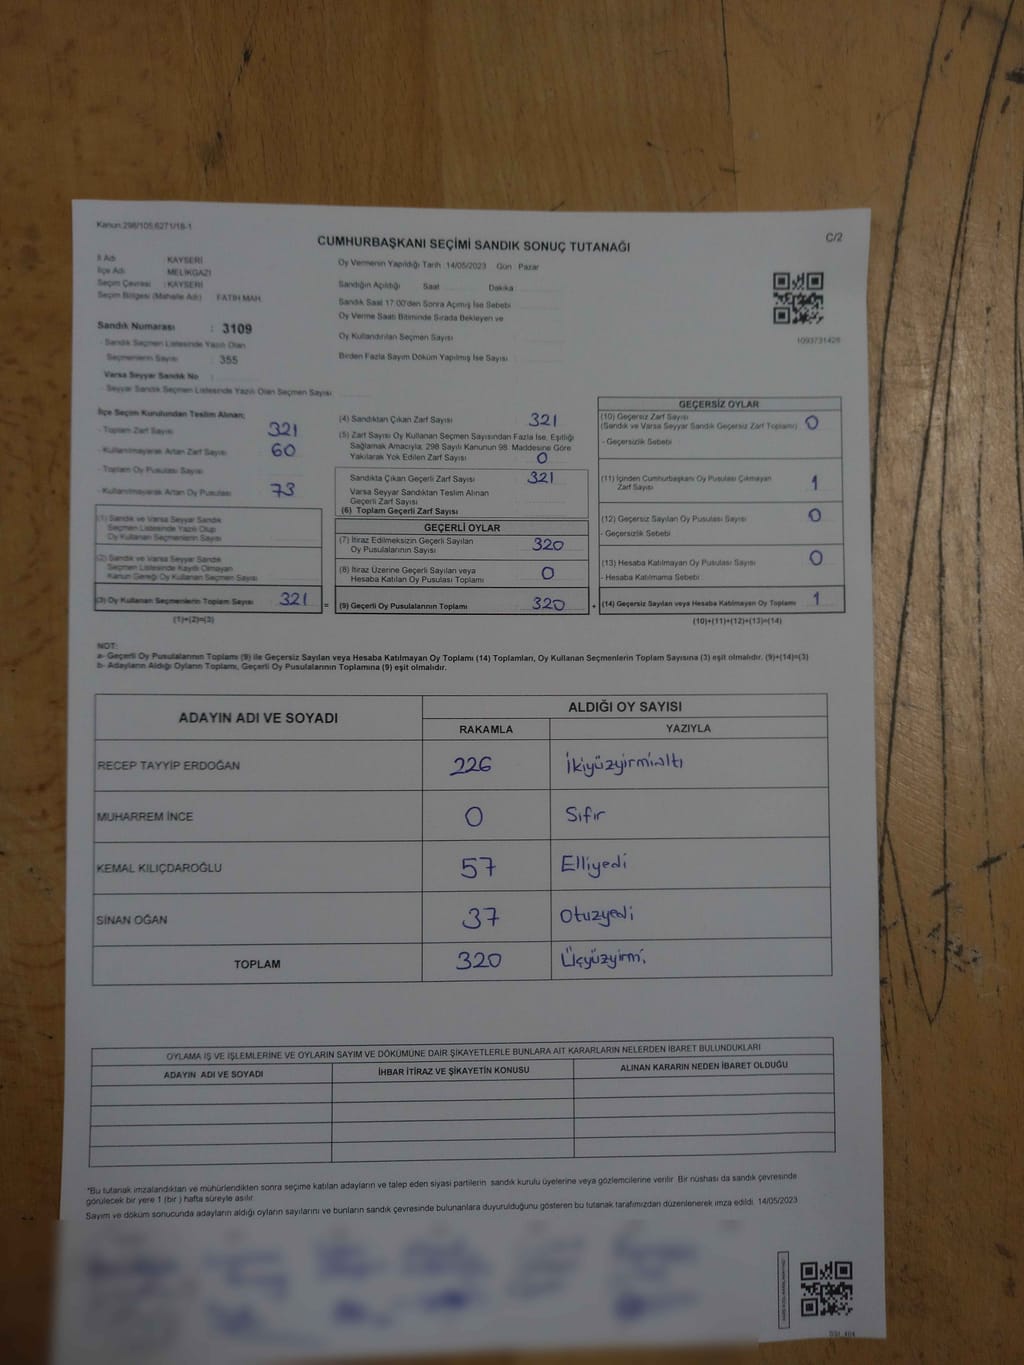 Kanun:298/105;6271/18-1
CUMHURBAŞKANI SEÇİMİ SANDIK SONUÇ TUTANAĞI
C/2
İl Adı : KAYSERİ
İlçe Adı : MELİKGAZİ
Seçim Çevresi : KAYSERİ
Seçim Bölgesi (Mahalle Adı) FATİH MAH.
Sandık Numarası : 3109
- Sandık Seçmen Listesinde Yazılı Olan
Seçmenlerin Sayısı : 355
Varsa Seyyar Sandık No :
- Seyyar Sandık Seçmen Listesinde Yazılı Olan Seçmen Sayısı
Oy Vermenin Yapıldığı Tarih :14/05/2023 Gün : Pazar
Sandığın Açıldığı Saat Dakika
Sandık Saat 17:00'den Sonra Açımış İse Sebebi
Oy Verme Saati Bitiminde Sırada Bekleyen ve
Oy Kullandırılan Seçmen Sayısı
Birden Fazla Sayım Döküm Yapılmış İse Sayısı
1093731428
İlçe Seçim Kurulundan Teslim Alınan;
- Toplam Zarf Sayısı 321
- Kullanılmayarak Artan Zarf Sayısı 60
- Toplam Oy Pusulası Sayısı
- Kullanılmayarak Artan Oy Pusulası 73
(1) Sandık ve Varsa Seyyar Sandık
Seçmen Listesinde Yazılı Olup
Oy Kullanan Seçmenlerin Sayısı
(2) Sandık ve Varsa Seyyar Sandık
Seçmen Listesinde Kayıtlı Olmayan
Kanun Gereği Oy Kullanan Seçmen Sayısı
(3) Oy Kullanan Seçmenlerin Toplam Sayısı 321 =
(1)+(2)=(3)
(4) Sandıktan Çıkan Zarf Sayısı 321
(5) Zarf Sayısı Oy Kullanan Seçmen Sayısından Fazla İse, Eşitliği
Sağlamak Amacıyla, 298 Sayılı Kanunun 98. Maddesine Göre
Yakılarak Yok Edilen Zarf Sayısı 0
Sandıkta Çıkan Geçerli Zarf Sayısı 321
Varsa Seyyar Sandıktan Teslim Alınan
Geçerli Zarf Sayısı
(6) Toplam Geçerli Zarf Sayısı
GEÇERLİ OYLAR
(7) İtiraz Edilmeksizin Geçerli Sayılan
Oy Pusulalarının Sayısı 320
(8) İtiraz Üzerine Geçerli Sayılan veya
Hesaba Katılan Oy Pusulası Toplamı 0
(9) Geçerli Oy Pusulalarının Toplamı 320 +
GEÇERSİZ OYLAR
(10) Geçersiz Zarf Sayısı
(Sandık ve Varsa Seyyar Sandık Geçersiz Zarf Toplamı) 0
- Geçersizlik Sebebi
(11) İçinden Cumhurbaşkanı Oy Pusulası Çıkmayan
Zarf Sayısı 1
(12) Geçersiz Sayılan Oy Pusulası Sayısı 0
- Geçersizlik Sebebi
(13) Hesaba Katılmayan Oy Pusulası Sayısı 0
- Hesaba Katılmama Sebebi
(14) Geçersiz Sayılan veya Hesaba Katılmayan Oy Toplamı 1
(10)+(11)+(12)+(13)=(14)
NOT:
a- Geçerli Oy Pusulalarının Toplamı (9) ile Geçersiz Sayılan veya Hesaba Katılmayan Oy Toplamı (14) Toplamları, Oy Kullanan Seçmenlerin Toplam Sayısına (3) eşit olmalıdır. (9)+(14)=(3)
b- Adayların Aldığı Oyların Toplamı, Geçerli Oy Pusulalarının Toplamına (9) eşit olmalıdır.
ADAYIN ADI VE SOYADI ALDIĞI OY SAYISI
RAKAMLA YAZIYLA
RECEP TAYYİP ERDOĞAN 226 İkiyüzyirmialtı
MUHARREM İNCE 0 Sıfır
KEMAL KILIÇDAROĞLU 57 Elliyedi
SİNAN OĞAN 37 Otuzyedi
TOPLAM 320 Üçyüzyirmi
OYLAMA İŞ VE İŞLEMLERİNE VE OYLARIN SAYIM VE DÖKÜMÜNE DAİR ŞİKAYETLERLE BUNLARA AİT KARARLARIN NELERDEN İBARET BULUNDUKLARI
ADAYIN ADI VE SOYADI İHBAR İTİRAZ VE ŞİKAYETİN KONUSU ALINAN KARARIN NEDEN İBARET OLDUĞU
*Bu tutanak imzalandıktan ve mühürlendikten sonra seçime katılan adayların ve talep eden siyasi partilerin sandık kurulu üyelerine veya gözlemcilerine verilir. Bir nüshası da sandık çevresinde
görülecek bir yere 1 (bir ) hafta süreyle asılır.
Sayım ve döküm sonucunda adayların aldığı oyların sayılarını ve bunların sandık çevresinde bulunanlara duyurulduğunu gösteren bu tutanak tarafımızdan düzenlenerek imza edildi. 14/05/2023